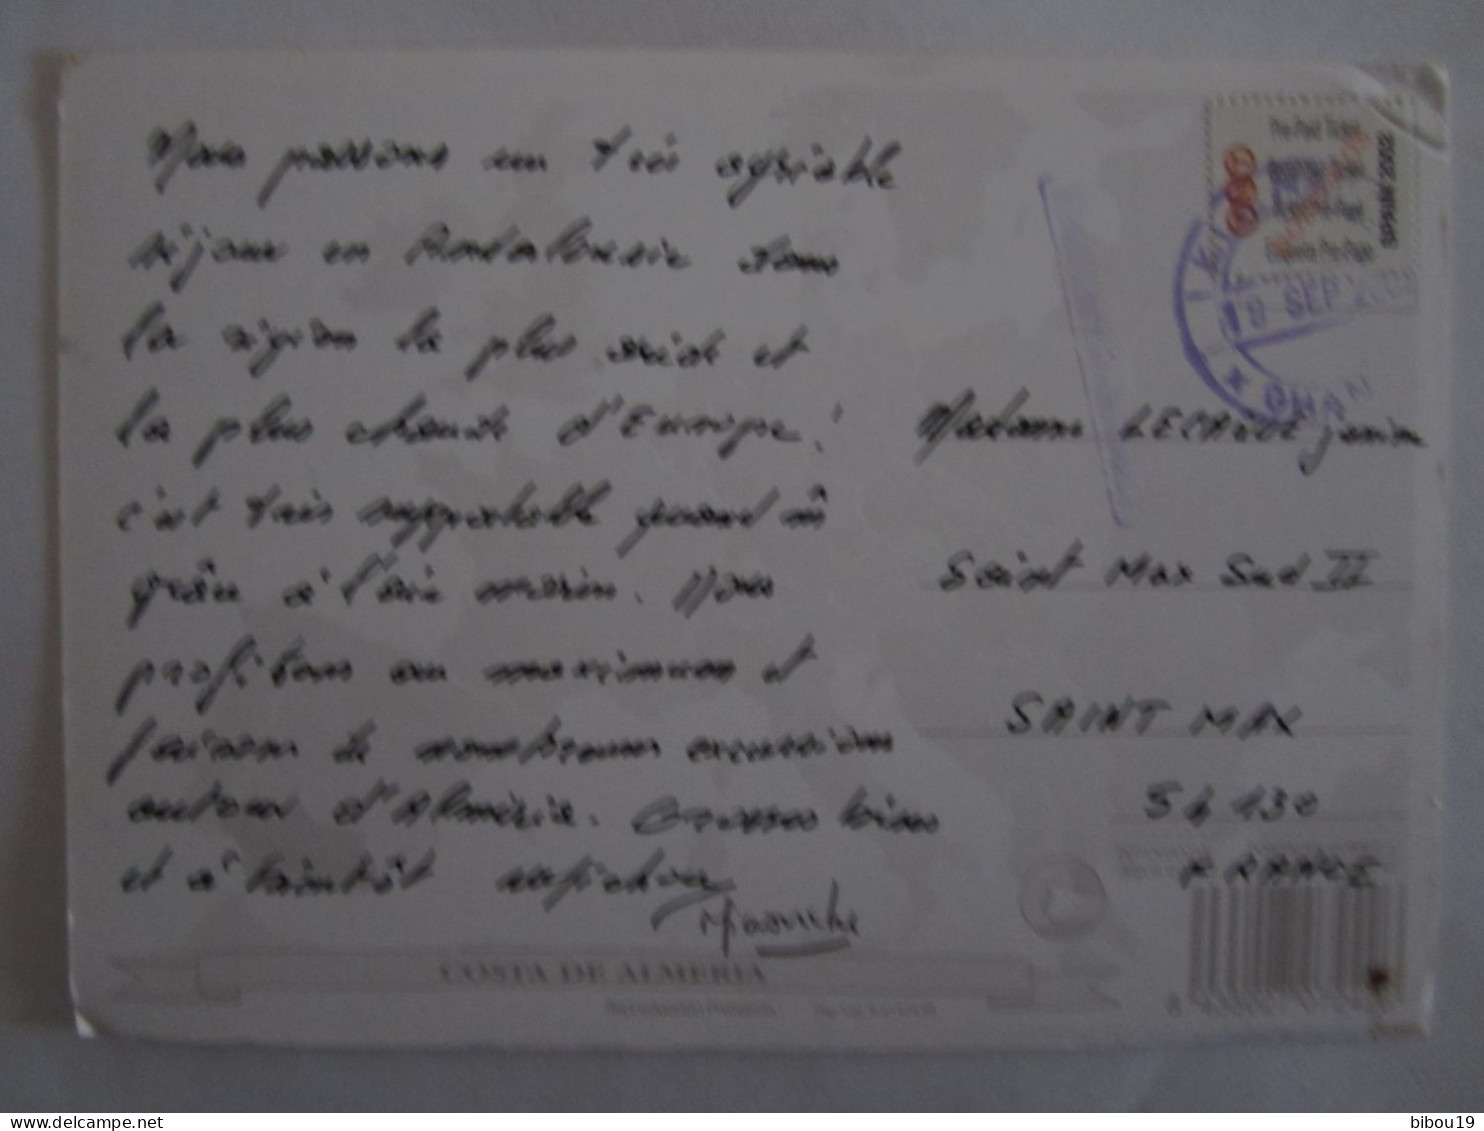 Nous passons un très agréable
séjour en Andalousie dans
la région la plus aride et
la plus chaude d'Europe !
c'est très supportable quand m̂
grâce à l'air marin. Nous
profitons au maximum et
faisons de nombreuses excursions
autour d'Alméria. Grosses bises
et à bientôt
Pre-Paid Ticket
SPAIN 2002
19 SEP
Madame Janine
Saint Max Sud II
SAINT MAX
54130
FRANCE
COSTA DE ALMERIA
delcampe.net
bibou19